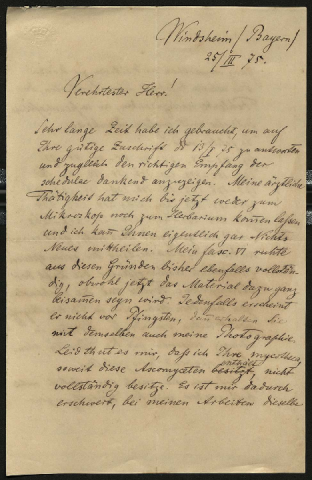 Windsheim (Bayern)
25/III 75.
Verehrtester Herr!
Sehr lange Zeit habe ich gebraucht, um auf
Ihre gütige Zuschrift dd 15/9 zu antworten
und zugleich den richtigen Empfang der
schedulae dankend anzuzeigen. Meine ärztliche
Thätigkeit hat mich bis jetzt weder zum
Mikroskop noch zum Herbarium kommen lassen
und ich kann Ihnen eigentlich gar Nichts
Neues mittheilen. Mein fasc. VI ruhte
aus diesen Gründen bisher ebenfalls vollstän-
dig, obwohl jetzt das Material dazu ganz
beisamen seyn wird. Jedenfalls erscheint
er nicht vor Pfingsten, dann erhalten Sie
mit demselben auch meine Photographie.
Leid thut es mir, daß ich Ihre
soweit diese Ascomyceten enthält, nicht
vollständig besitze. Es ist mir dadurch
erschwert, bei meinen Arbeiten dieselbe